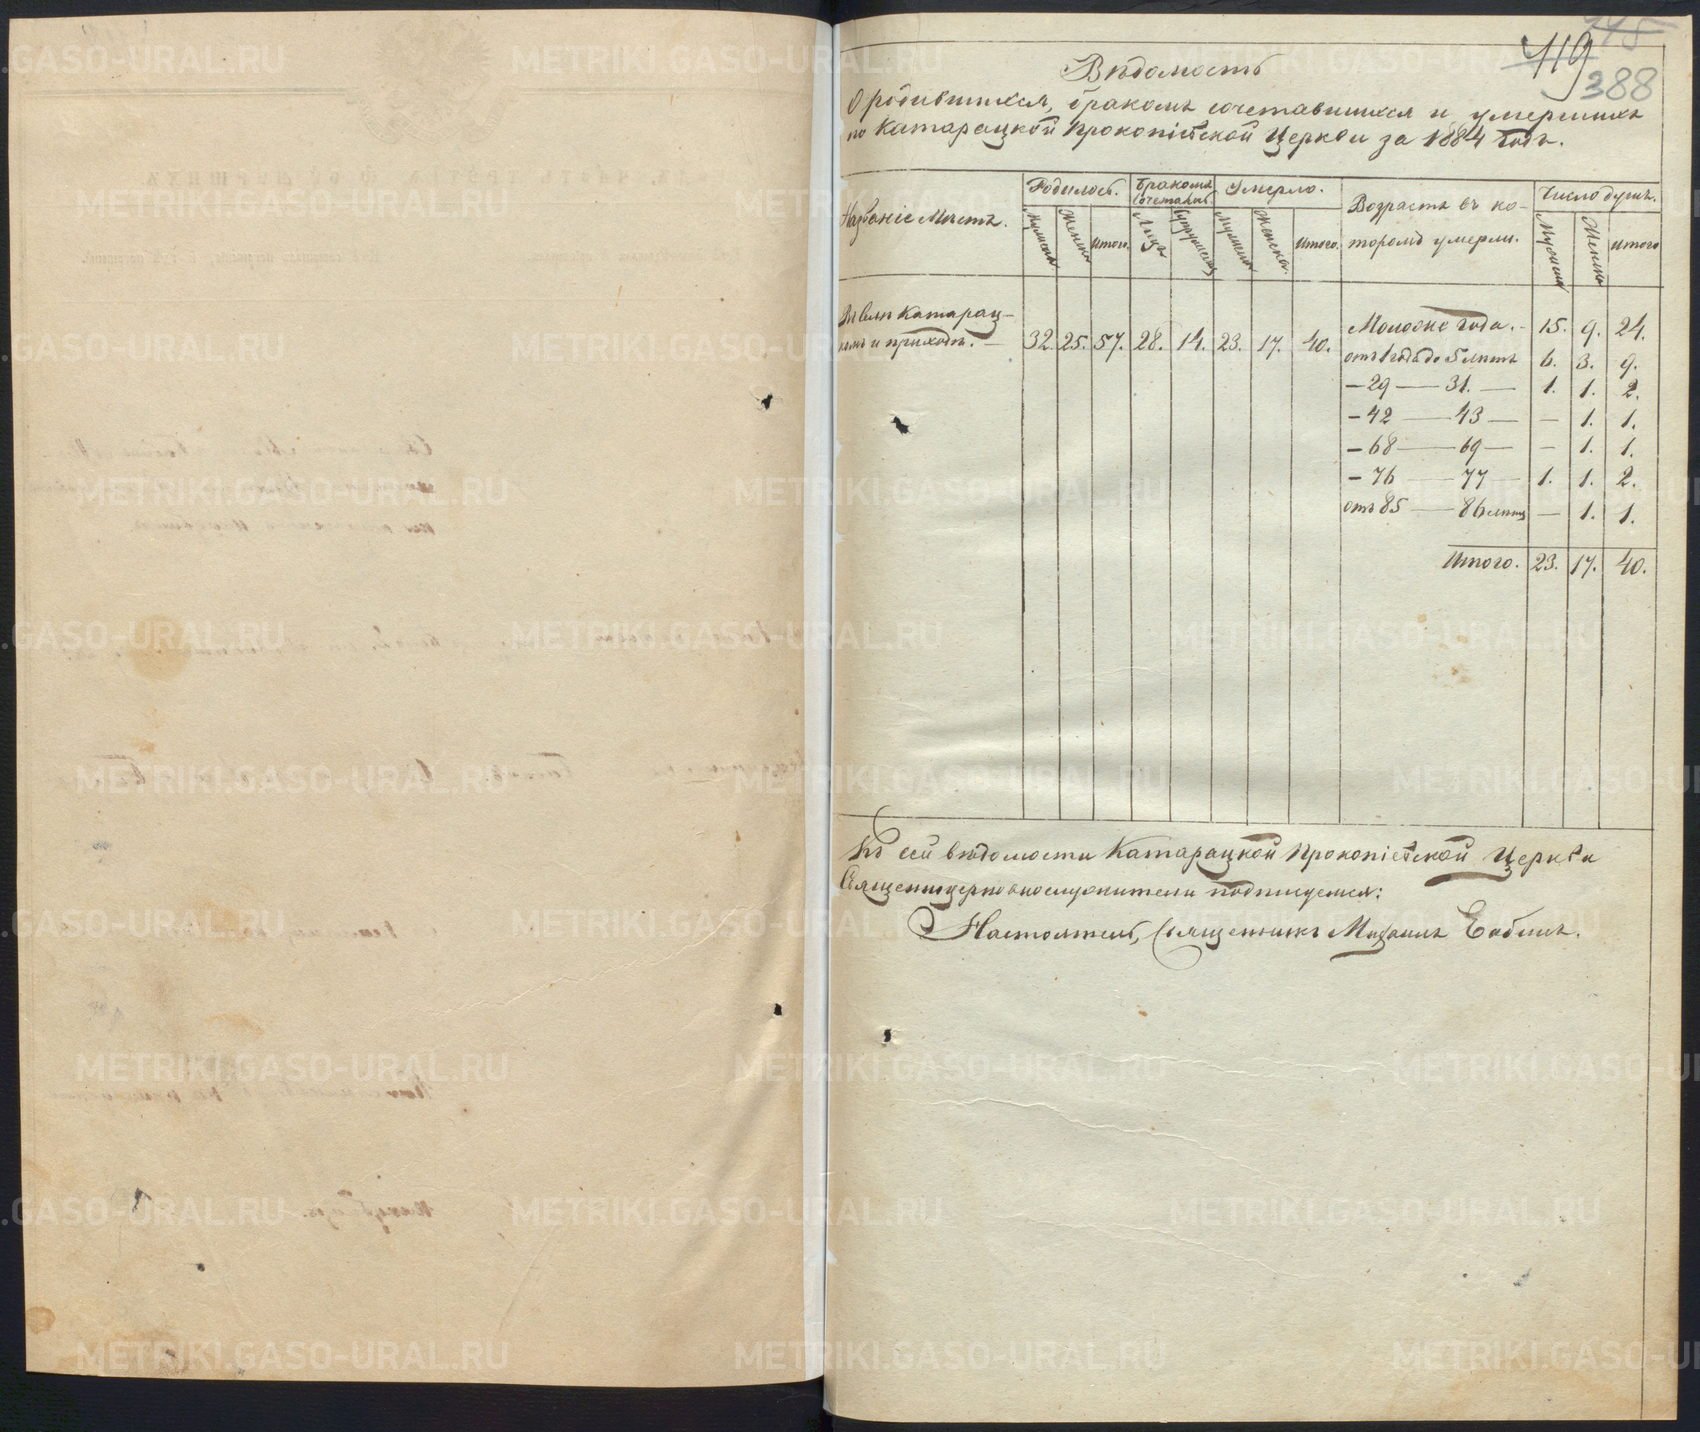 119
388
Вѣдомость
О родившихся, бракомъ сочетавшихся и умершихъ
по Катарацкой Прокопіевской Церкви за 1884 годъ.
Названіе Мѣстъ. Родилось. Бракомъ сочетались Умерло. Возрастъ въ которомъ умерли. Число душъ.
Мужеска Женска Итого. Лица Супружества Мужеска Женска. Итого. Мужеска Женска Итого
Въ селѣ Катарац-
комъ и приходѣ. — 32. 25. 57. 28. 14. 23. 17. 40.
Моложе года. - 15. 9. 24.
отъ 1 года до 5 лѣтъ 6. 3. 9.
— 29 — 31. — 1. 1. 2.
— 42 — 43 — — 1. 1.
— 68 — 69 — — 1. 1.
— 76 — 77 — 1. 1. 2.
отъ 85 — 86 лѣтъ — 1. 1.
Итого. 23. 17. 40.
Къ сей вѣдомости Катарацкой Прокопіевской Церкви
Священноцерковнослужители подписуемся:
Настоятель, Священникъ Михаилъ Бабинъ.
METRIKI.GASO-URAL.RU